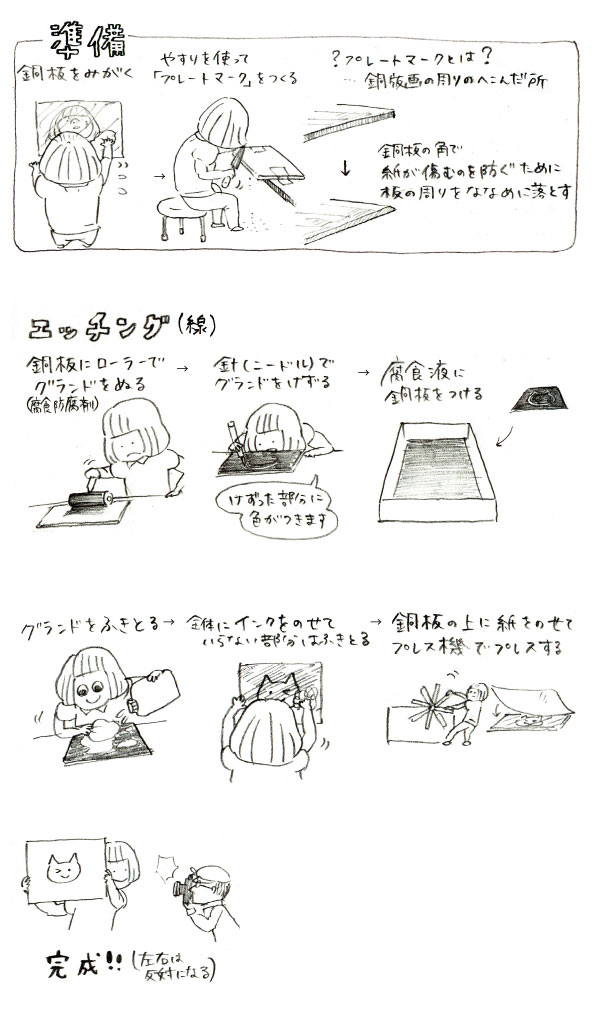 準備
銅板をみがく
→
やすりを使って
「プレートマーク」をつくる
?プレートマークとは?
…銅版画の周りのへこんだ所
↓
銅板の角で
紙が傷むのを防ぐために
板の周りをななめに落とす
エッチング(線)
銅板にローラーで
グランドをぬる
(腐食防腐剤)
→
針(ニードル)で
グランドをけずる
けずった部分に
色がつきます
→
腐食液に
銅板をつける
グランドをふきとる
→
全体にインクをのせて
いらない部分はふきとる
→
銅板の上に紙をのせて
プレス機でプレスする
完成!!(左右は
反対になる)